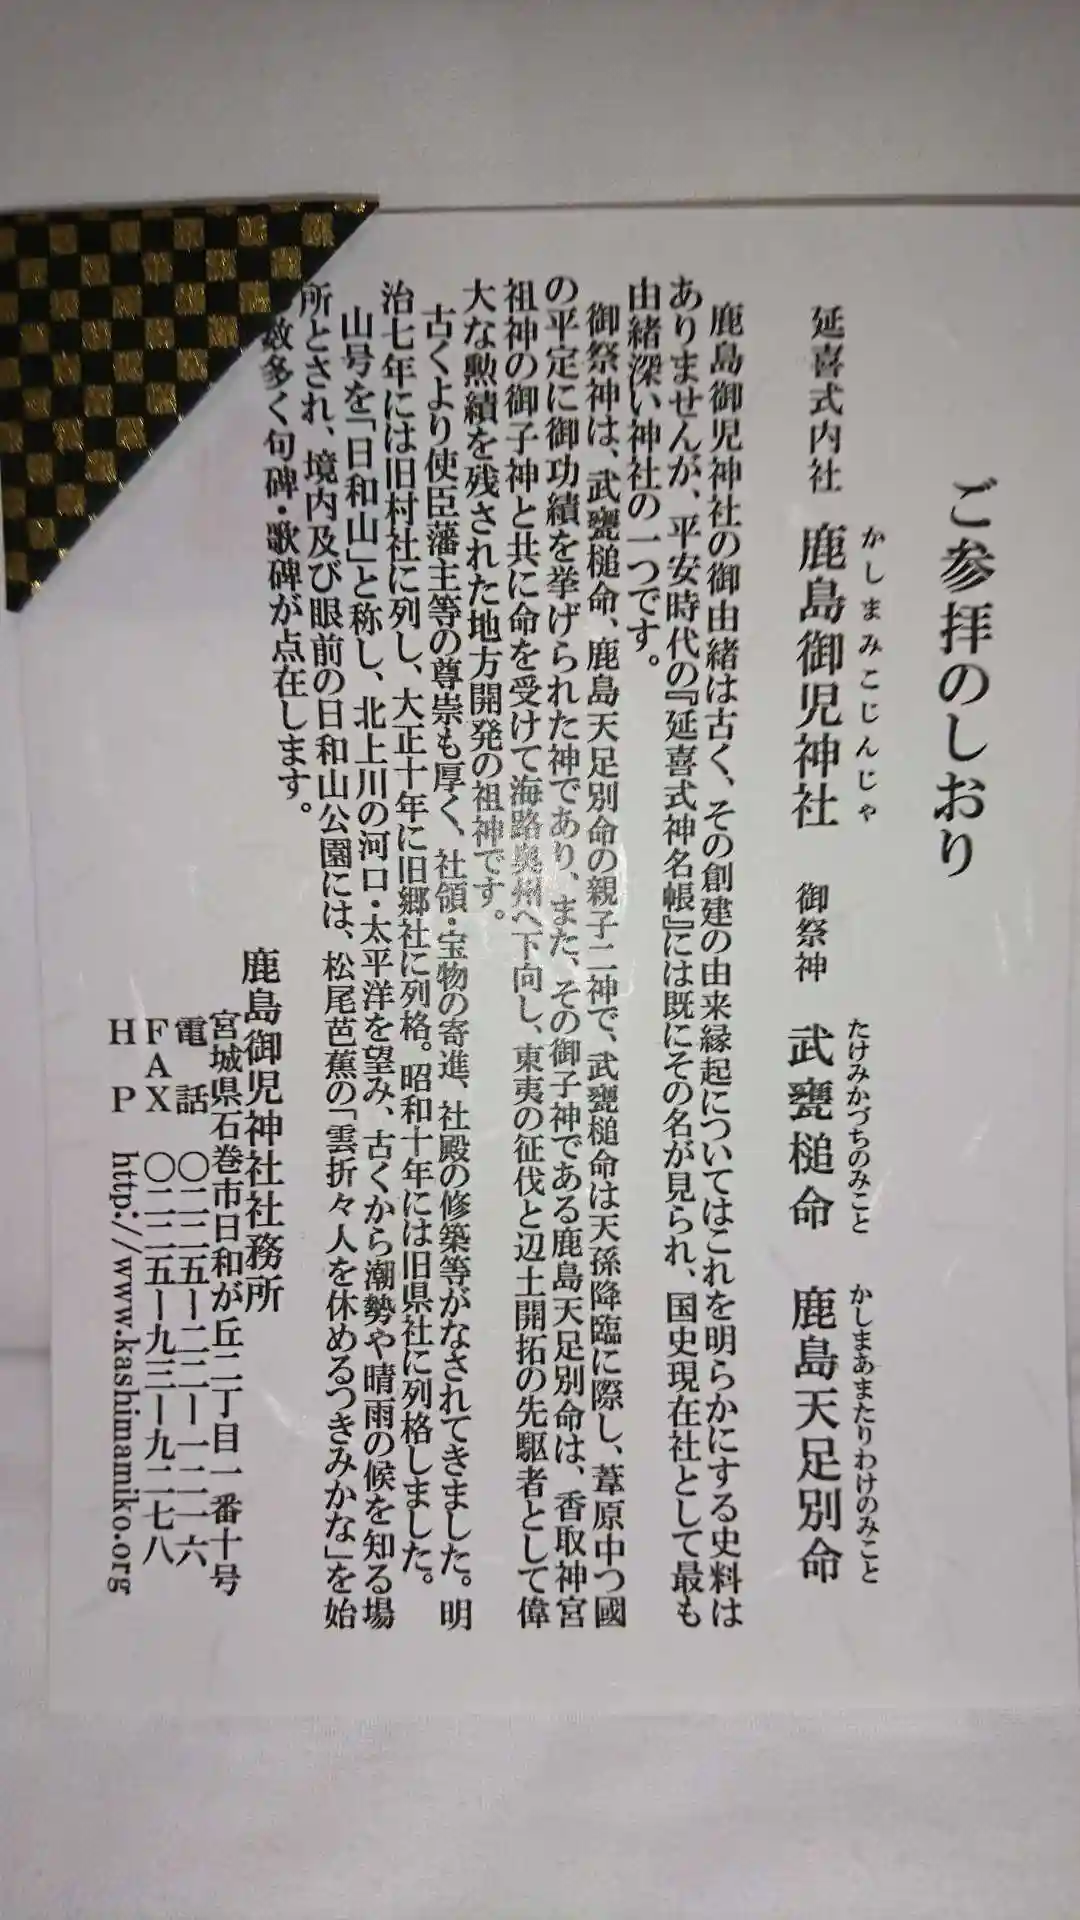 ご参拝のしおり
延喜式内社 鹿島御児神社 御祭神 武甕槌命 鹿島天足別命
かしまみこじんじゃ たけみかづちのみこと かしまあまたりわけのみこと
鹿島御児神社の御由緒は古く、その創建の由来縁起についてはこれを明らかにする史料は
ありませんが、平安時代の『延喜式神名帳』には既にその名が見られ、国史現在社として最も
由緒深い神社の一つです。
御祭神は、武甕槌命、鹿島天足別命の親子二神で、武甕槌命は天孫降臨に際し、葦原中つ國
の平定に御功績を挙げられた神であり、また、その御子神である鹿島天足別命は、香取神宮
祖神の御子神と共に命を受けて海路奥州へ下向し、東夷の征伐と辺土開拓の先駆者として偉
大な勲績を残された地方開発の祖神です。
古くより使臣藩主等の尊崇も厚く、社領・宝物の寄進、社殿の修築等がなされてきました。明
治七年には旧村社に列し、大正十年に旧郷社に列格。昭和十年には旧県社に列格しました。
山号を「日和山」と称し、北上川の河口・太平洋を望み、古くから潮勢や晴雨の候を知る場
所とされ、境内及び眼前の日和山公園には、松尾芭蕉の「雲折々人を休めるつきみかな」を始
数多く句碑・歌碑が点在します。
鹿島御児神社社務所
宮城県石巻市日和が丘二丁目一番十号
電話 〇二二五ー二二ー一二一六
FAX 〇二二五ー九三ー九二七八
HP http://www.kashimamiko.org